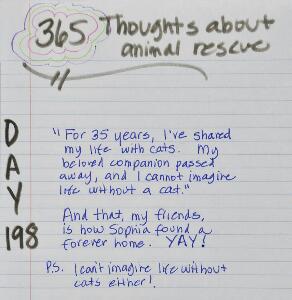 365 Thoughts about
animal rescue
DAY
198
"For 35 years, I've shared
my life with cats. My
beloved companion passed
away, and I cannot imagine
life without a cat."
And that, my friends,
is how Sophia found a
forever home. YAY!
P.S. I can't imagine life without
cats either!